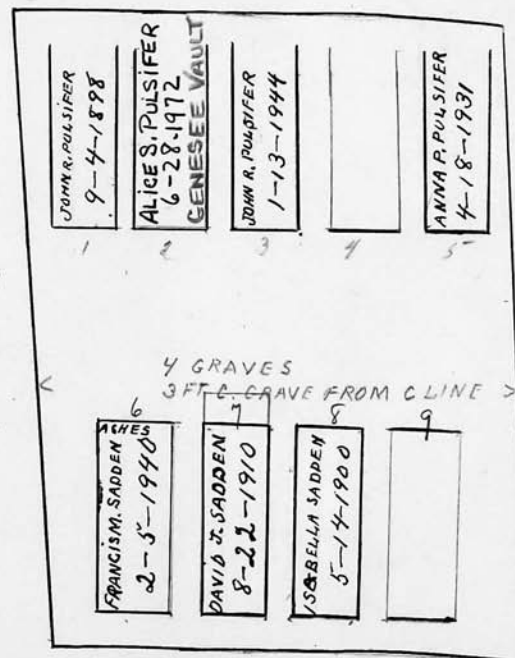 JOHN R. PULSIFER
9-4-1898
ALICE S. PULSIFER
6-28-1972
GENESEE VAULT
JOHN R. PULSIFER
1-13-1944
ANNA P. PULSIFER
4-18-1931
1
2
3
4
5
4 GRAVES
< 3 FT C. GRAVE FROM C LINE >
6
7
8
9
ASHES
FRANCIS M. SADDEN
2-5-1940
DAVID J. SADDEN
8-22-1910
ISABELLA SADDEN
5-14-1900